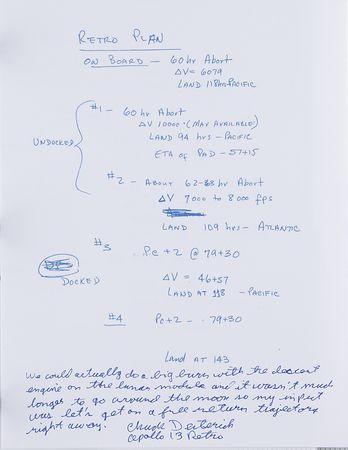 RETRO PLAN
ON BOARD - 60 hr Abort
ΔV = 6079
LAND 118HR-PACIFIC
#1 - 60 hr Abort
ΔV 10000 - (MAX AVAILABLE)
LAND 94 hrs - PACIFIC
UNDOCKED
ETA of PAD - 57+15
#2 - ABOUT 62-63 hr Abort
ΔV 7000 to 8000 fps
LAND 109 hrs - ATLANTIC
#3 Pc + 2 @ 79+30
DOCKED
ΔV = 46+57
LAND AT 118 - PACIFIC
#4 Pc+2 - 79+30
Land AT 143
We could actually do a big burn with the descent
engine on the lunar module and it wasn't much
longer to go around the moon so my input
was let's get on a free return trajectory
right away. Chuck Deiterich
Apollo 13 Retro